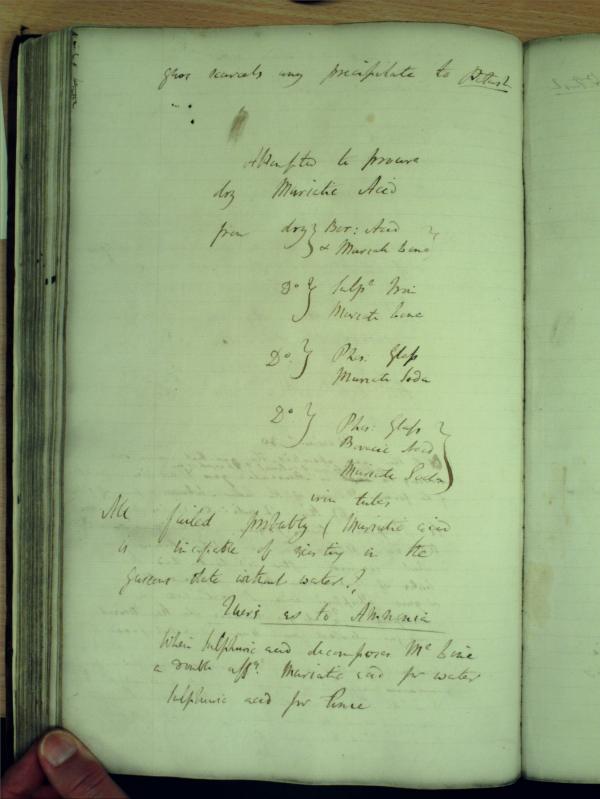 gives scarcely any precipitate to Potash
Attempted to procure
dry Muriatic Acid
from dry } Bor: Acid
& Muriate Lime
Do } Sulpe Iron
Muriate Lime
Do. } Phos. Glass
Muriate Soda
Do } Phos: Glass
Boracic Acid
Muriate Soda
iron tubes
All failed probably ( Muriatic acid
is incapable of existing in the
gaseous state without water?
as to Ammonia
When Sulphuric acid decomposes Me Lime
a double affy. Muriatic acid for water
Sulphuric acid for Lime